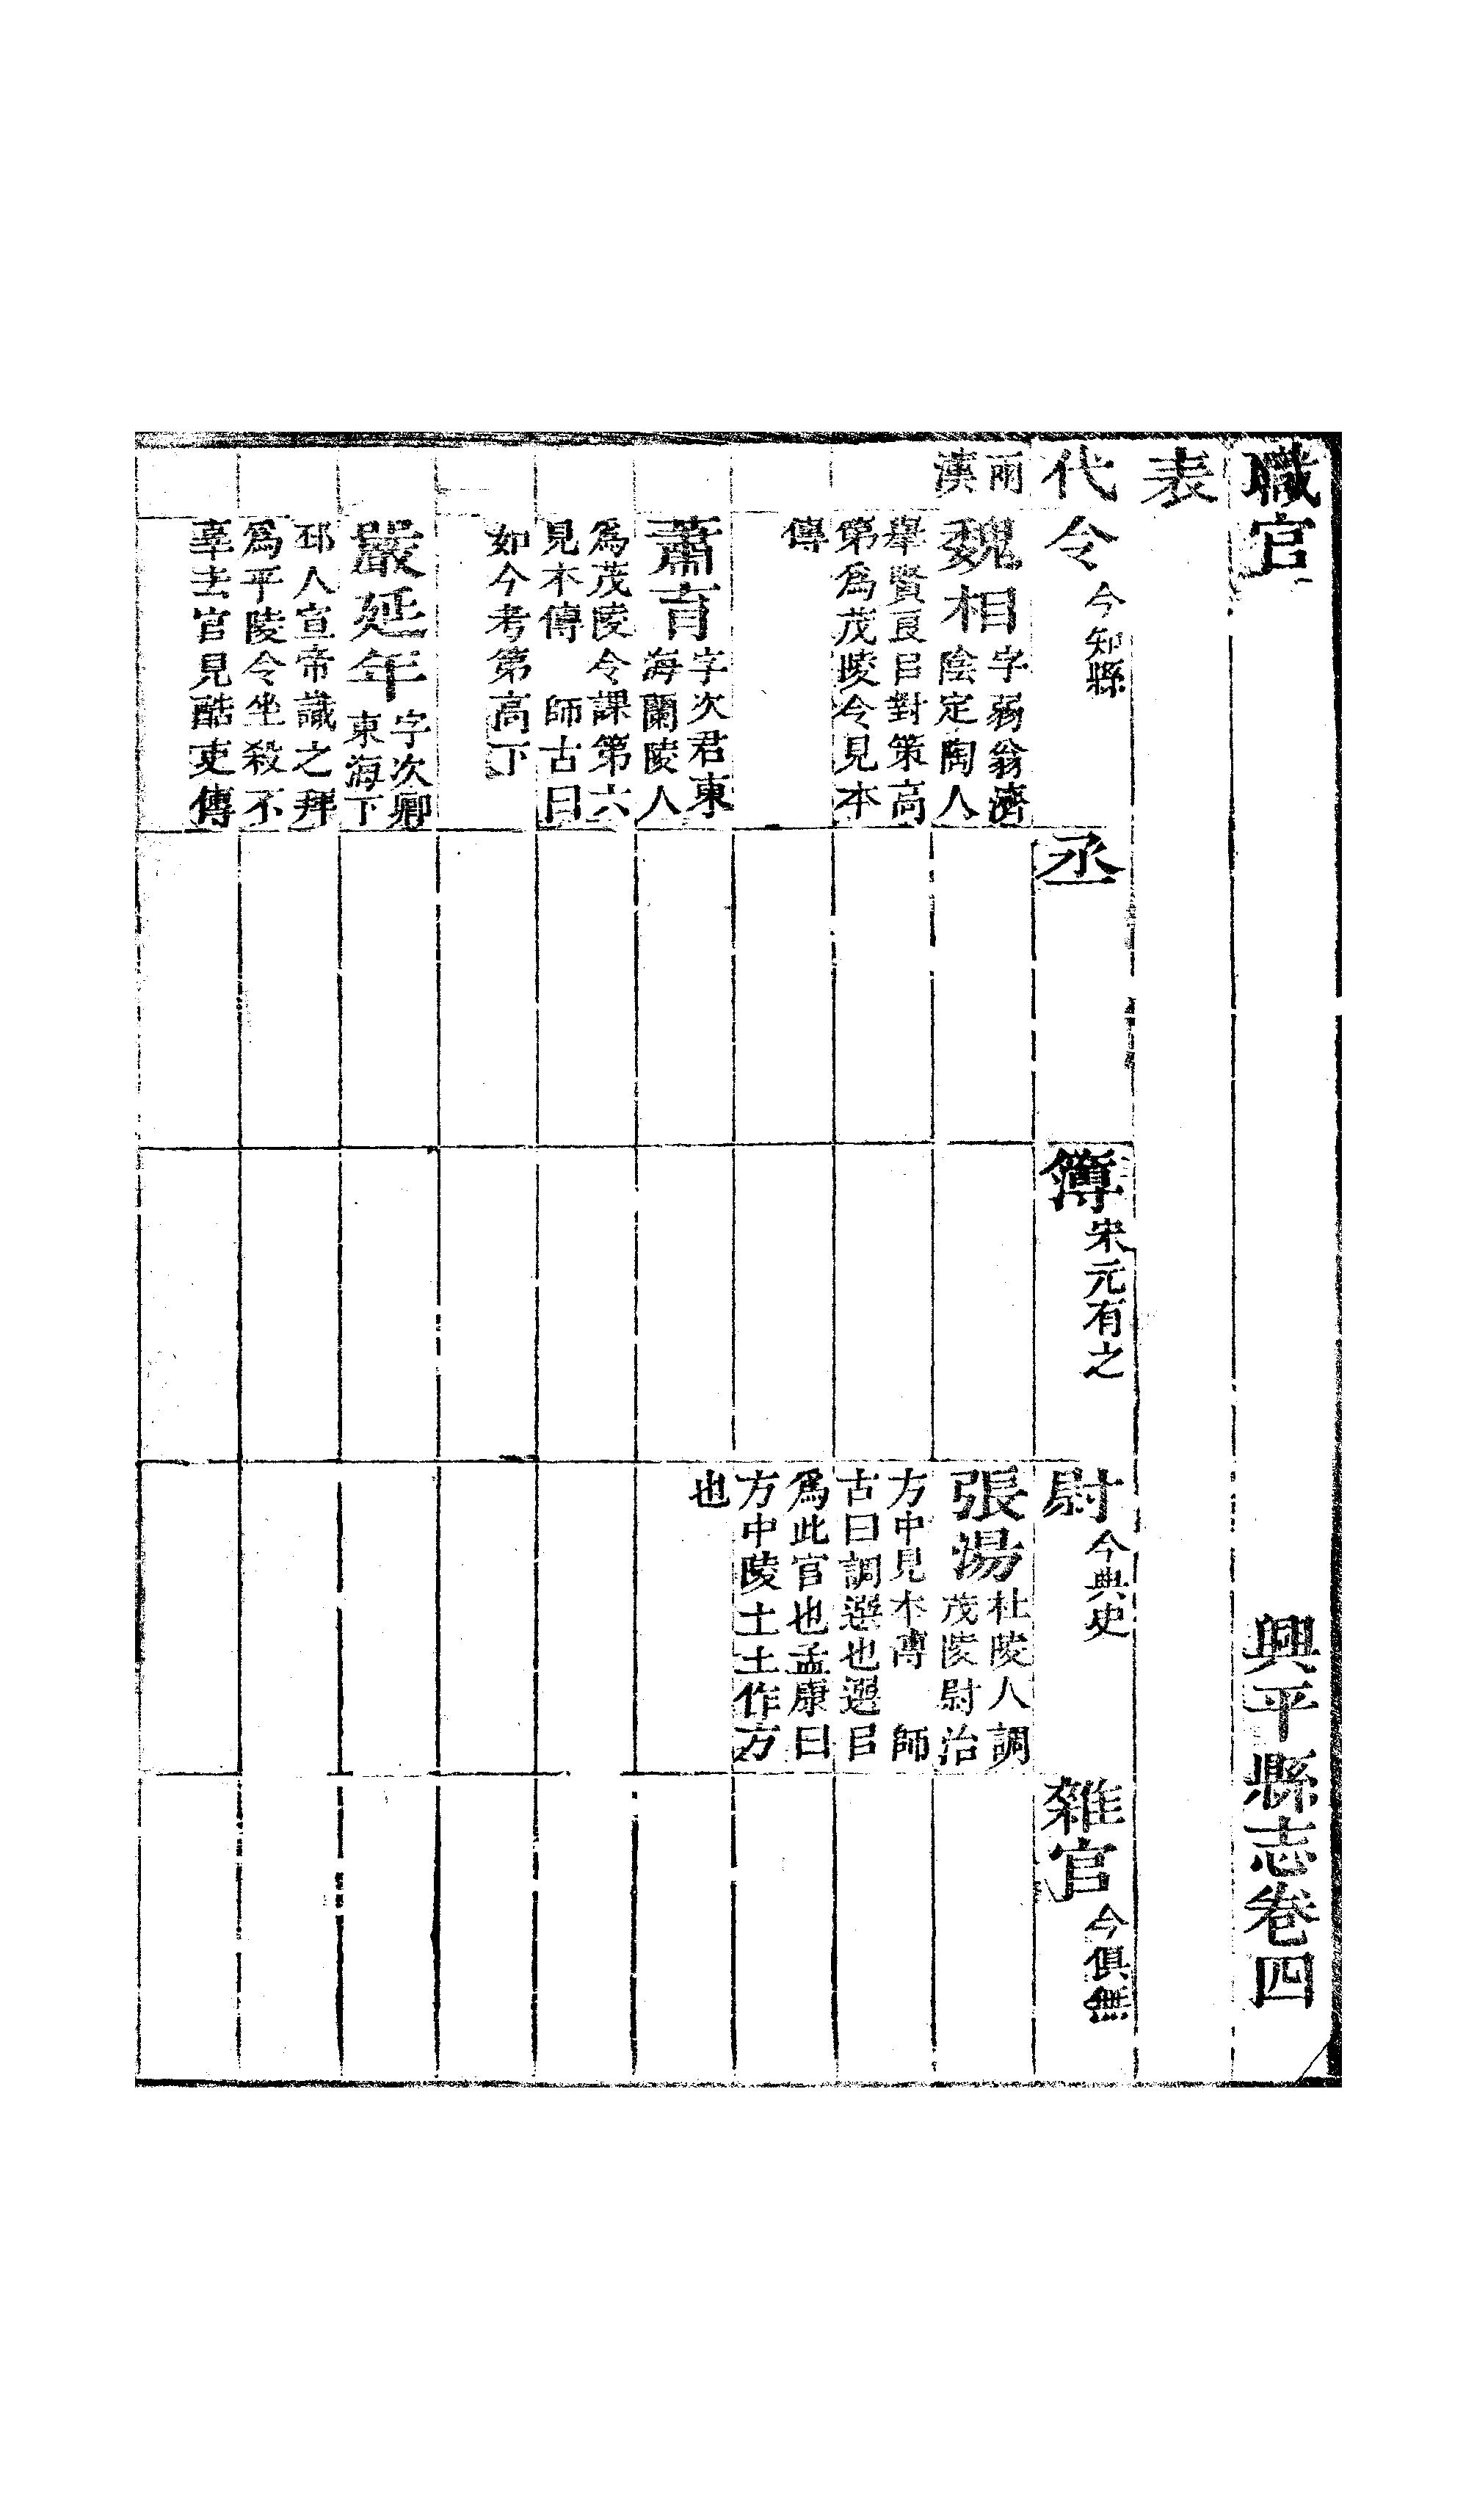 職官 興平縣志卷四
表
代 令 今知縣 丞 簿 宋元有之 尉 今典史 雜官 今俱無
兩
漢
魏相 字弱翁濟
陰定陶人
舉賢良㠯對策高
第爲茂陵令見本
傳
張湯 杜陵人調
茂陵尉治
方中見本傳 師
古曰調選也選㠯
爲此官也孟康曰
方中陵土土作方
也
蕭育 字次君東
海蘭陵人
爲茂陵令課第六
見本傳 師古曰
如今考第高下
嚴延年 字次卿
東海下
邳人宣帝識之拜
爲平陵令坐殺不
辜去官見酷吏傳